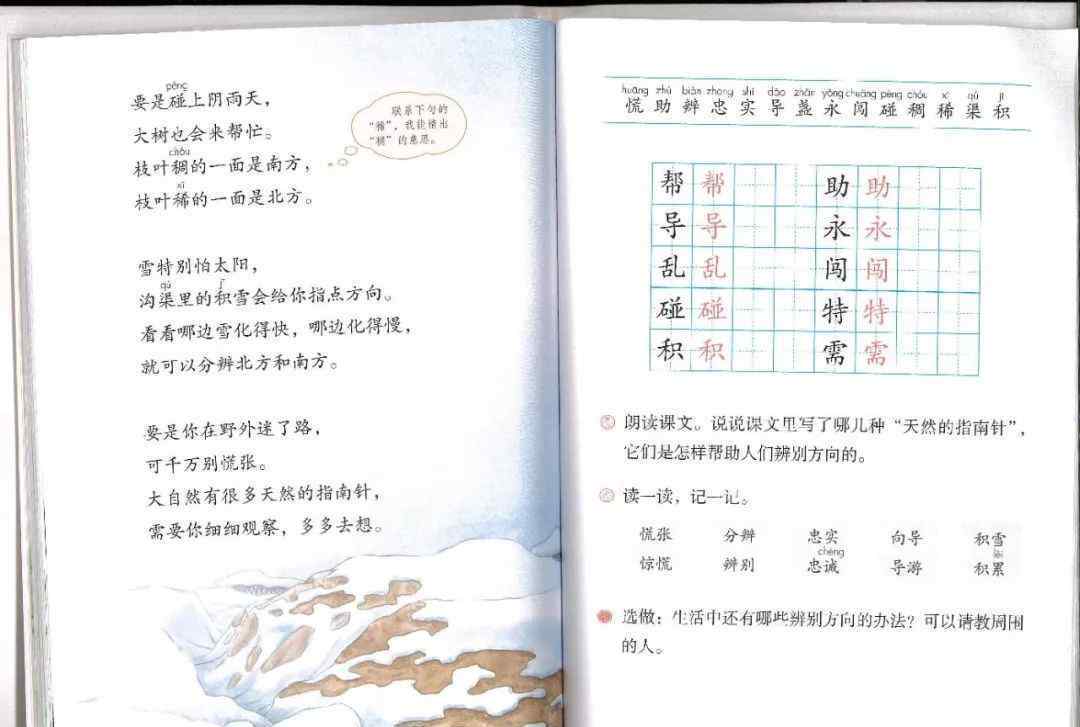 pèng
要是碰上阴雨天，
大树也会来帮忙。
chóu
枝叶稠的一面是南方，
xī
枝叶稀的一面是北方。
联系下句的
“稀”，我能猜出
“稠”的意思。
雪特别怕太阳，
qú jī
沟渠里的积雪会给你指点方向。
看看哪边雪化得快，哪边化得慢，
就可以分辨北方和南方。
要是你在野外迷了路，
可千万别慌张。
大自然有很多天然的指南针，
需要你细细观察，多多去想。
huāng zhù biàn zhōng shí dǎo zhǎn yǒng chuǎng pèng chóu xī qú jī
慌 助 辨 忠 实 导 盏 永 闯 碰 稠 稀 渠 积
帮 帮 助 助
导 导 永 永
乱 乱 闯 闯
碰 碰 特 特
积 积 需 需
朗读课文。说说课文里写了哪几种“天然的指南针”，
它们是怎样帮助人们辨别方向的。
读一读，记一记。
慌张 分辨 忠实 向导 积雪
chéng lěi
惊慌 辨别 忠诚 导游 积累
选做：生活中还有哪些辨别方向的办法？可以请教周围
的人。